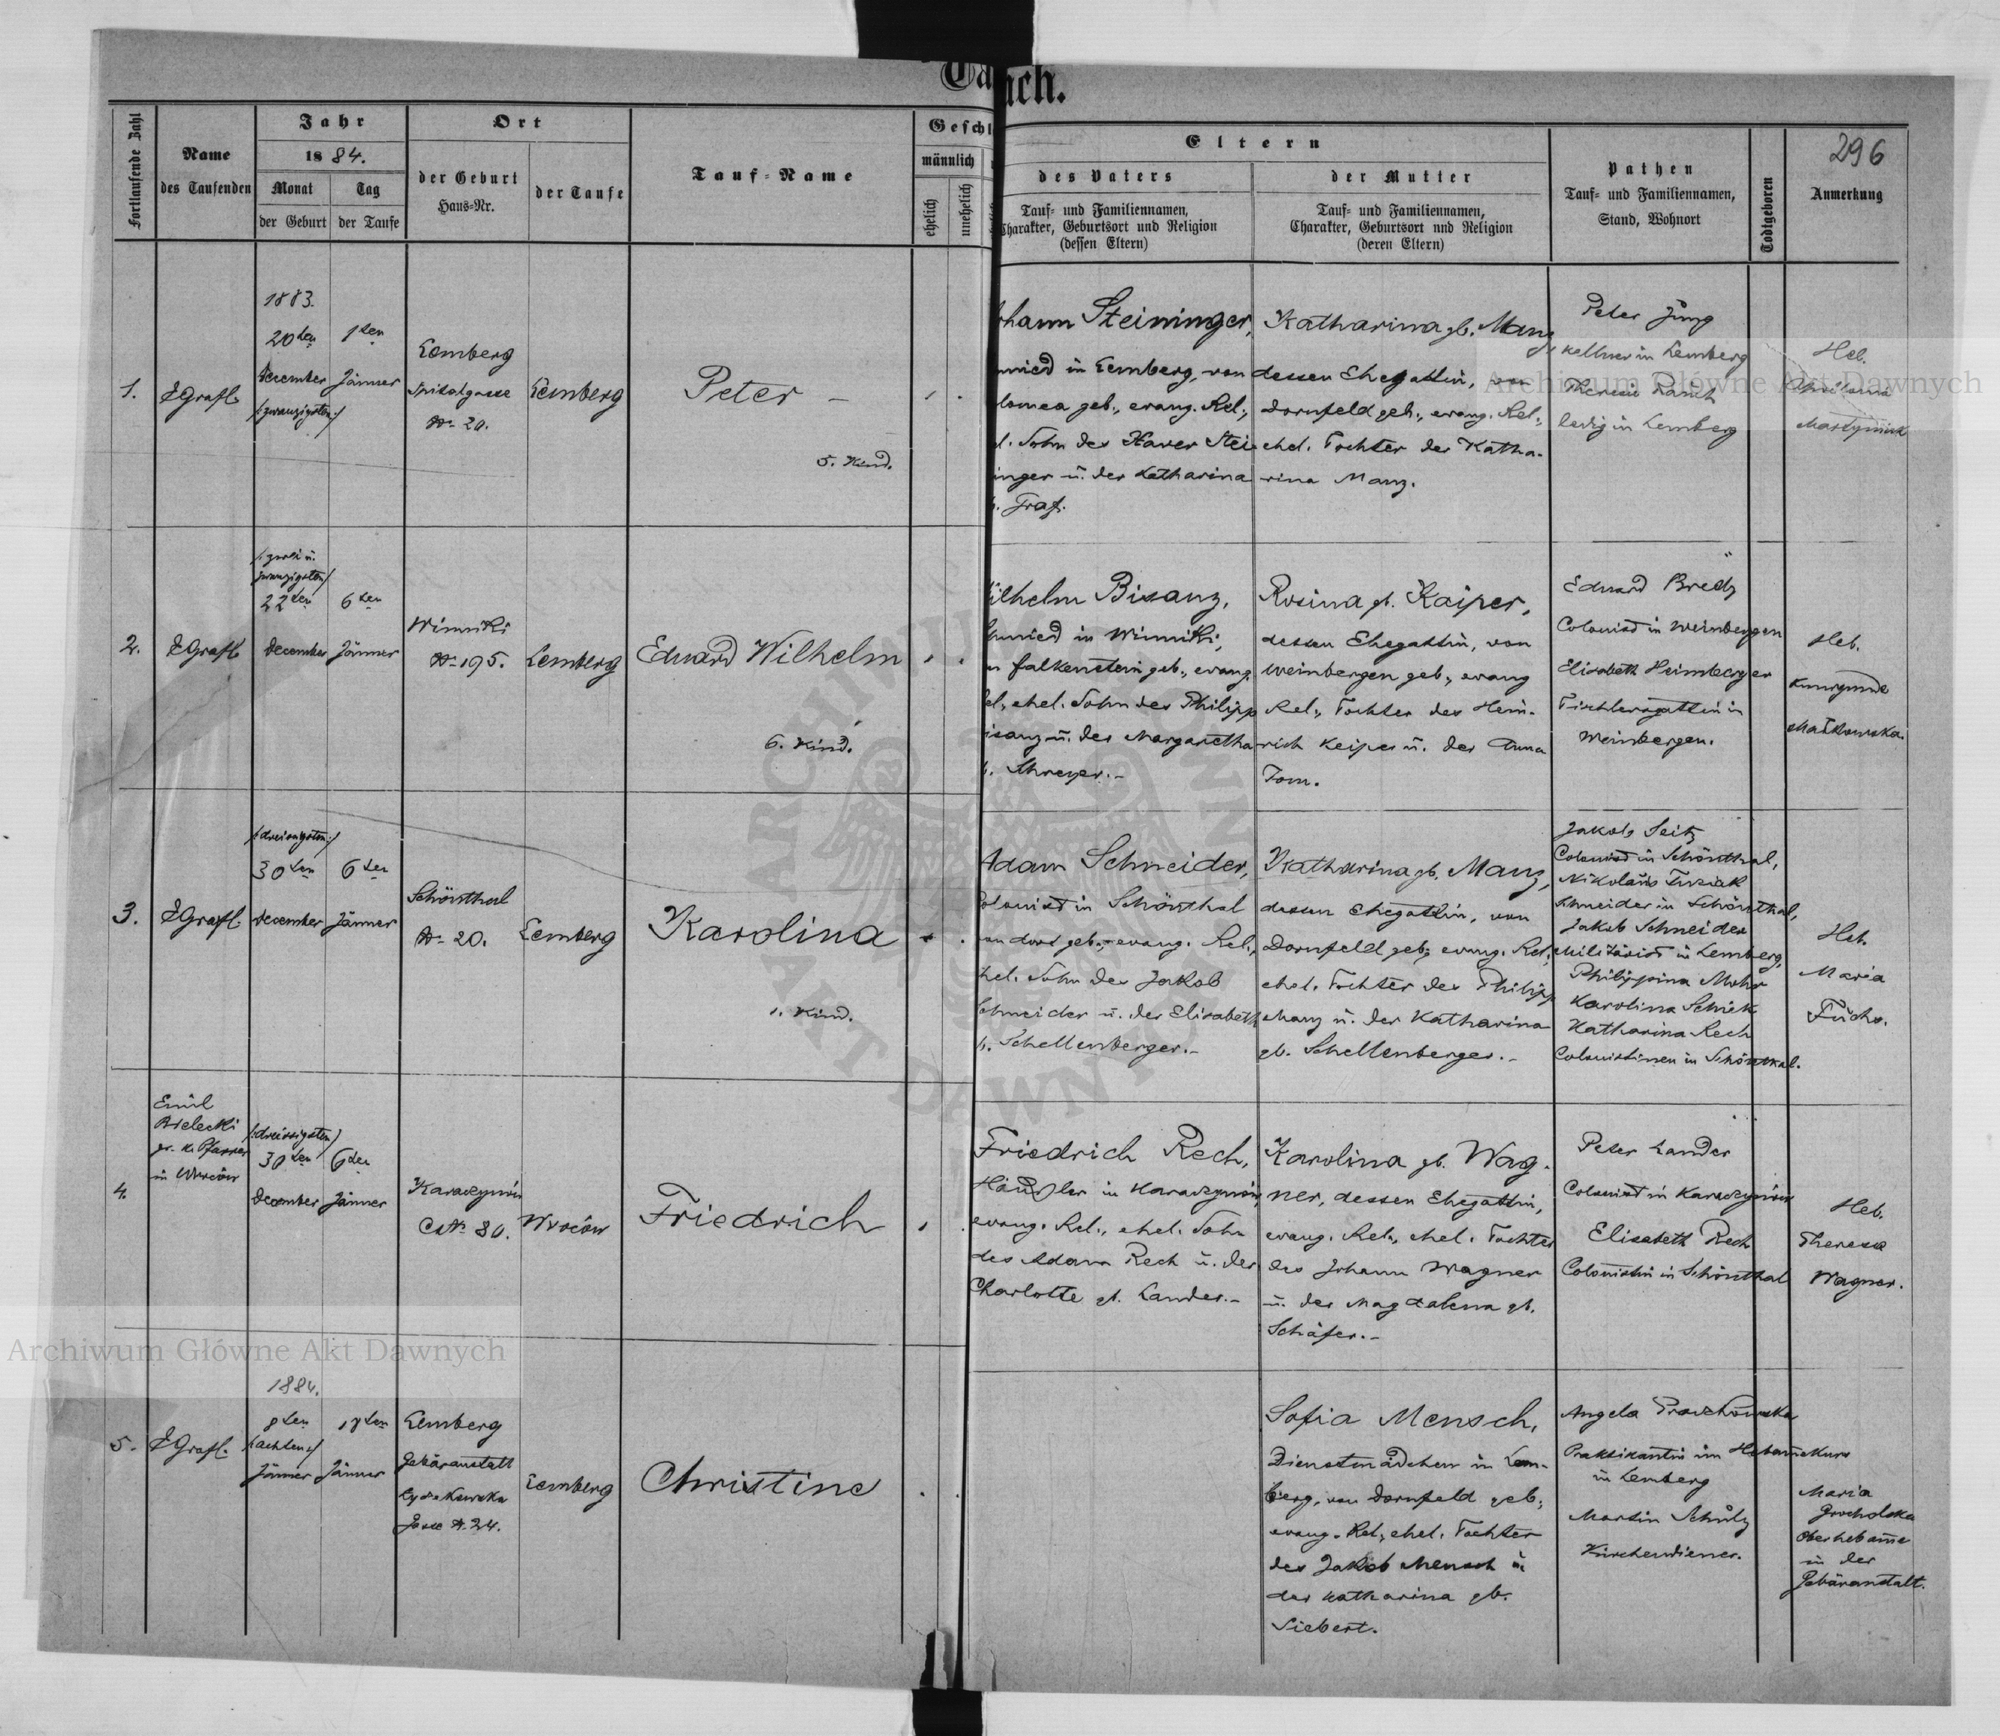 Ta uch.
Fortlaufende Zahl
Name
des Taufenden
Jahr
1884.
Monat
Tag
der Geburt
der Taufe
Ort
der Geburt
Haus-Nr.
der Taufe
Tauf-Name
Geschl
männlich
ehelich
unehelich
Eltern
des Vaters
Tauf- und Familiennamen,
Charakter, Geburtsort und Religion
(dessen Eltern)
der Mutter
Tauf- und Familiennamen,
Charakter, Geburtsort und Religion
(deren Eltern)
Pathen
Tauf- und Familiennamen,
Stand, Wohnort
Todtgeboren
296
Anmerkung
1.
Grafl
1883.
20ten
December
/:zwanzigsten:/
1ten
Jänner
Lemberg
Spitalgasse
Nr 20.
Lemberg
Peter –
5. Kind.
ohann Steininger,
mied in Lemberg, von
lomea geb., evang. Rel.,
l. Sohn des Xaver Stei
inger u. der Katharina
b. Graf.
Katharina gb. Manz
dessen Ehegattin, von
Dornfeld geb., evang. Rel.,
ehel. Tochter der Katha-
rina Manz.
Peter Jung
Kellner in Lemberg
Therese
ledig in Lemberg
Heb.
Martyniuk
2.
Grafl
/:zwei u.
zwanzigsten/
22ten
December
6ten
Jänner
Winniki
Nr 195.
Lemberg
Eduard Wilhelm
6. Kind.
ilhelm Bisanz,
hmied in Winniki,
n Falkenstein geb., evang.
el., ehel. Sohn des Philipp
isanz u. der Margaretha
b. Schreyer.–
Rosina gb. Kaiper,
dessen Ehegattin, von
Weinbergen geb., evang
Rel., Tochter des Hein-
rich Keiper u. der Anna
Tom.
Eduard Bredy
Colonist in Weinbergen
Elisabeth Heimberger
Tischlersgattin in
Weinbergen.
Heb.
Kunegunde
Małkowska.
3.
Grafl.
/:dreissigsten:/
30ten
December
6ten
Jänner
Schönthal
Nr 20.
Lemberg
Karolina
1. Kind.
Adam Schneider,
Colonist in Schönthal
von dort geb., evang. Rel.,
hel. Sohn des Jakob
Schneider u. der Elisabeth
b. Schellenberger.–
Katharina gb. Manz,
dessen Ehegattin, von
Dornfeld geb., evang. Rel.,
ehel. Tochter des Philipp
Manz u. der Katharina
gb. Schellenberger.–
Jakob Seitz
Colonist in Schönthal,
Nikolaus
Schneider in Schönthal,
Jakob Schneider
Militärist in Lemberg,
Philippina Mohr
Karolina Schick
Katharina Rech
Colonistinen in Schönthal.
Heb.
Maria
Fuchs.
4.
Emil
Bielecki
gr. k. Pfarrer
in Wroców
/:dreissigsten/
30ten
December
6ten
Jänner
Karaczynów
CNr 80.
Wroców
Friedrich
Friedrich Rech,
Häusler in Karaczynów,
evang. Rel., ehel. Sohn
des Adam Rech u. der
Charlotte gb. Lander.–
Karolina gb. Wag-
ner, dessen Ehegattin,
evang. Rel., ehel. Tochter
des Johann Wagner
u. der Magdalena gb.
Schäfer.–
Peter Lander
Colonist in Karaczynów
Elisabeth Rech
Colonistin in Schönthal
Heb.
Theresa
Wagner.
5.
Grafl.
1884.
8ten
/:achten:/
Jänner
18ten
Jänner
Lemberg
Gebäranstalt
Gasse N. 24.
Lemberg
Christine
Sofia Mensch,
Dienstmädchen in Lem-
berg, von Dornfeld geb.,
evang. Rel., ehel. Tochter
des Jakob Mensch u.
der Katharina gb.
Siebert.
Angela
Praktikantin im Hebamekurs
in Lemberg
Martin Schulz
Kirchendiener.
Maria
Grocholska
Oberhebame
in der
Gebäranstalt.
Archiwum Główne Akt Dawnych
Archiwum Główne Akt Dawnych